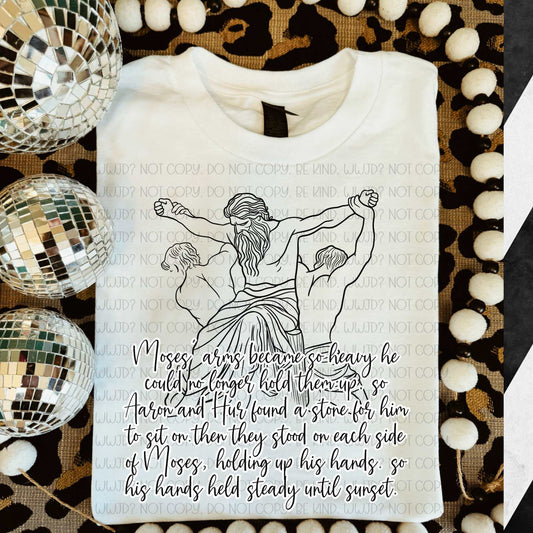 WWJD? NOT COPY. DO NOT COPY, BE KIND. WWJD? NOT COPY.
Moses' arms became so heavy he
could no longer hold them up. so
Aaron and Hur found a stone for him
to sit on. then they stood on each side
of Moses, holding up his hands. so
his hands held steady until sunset.